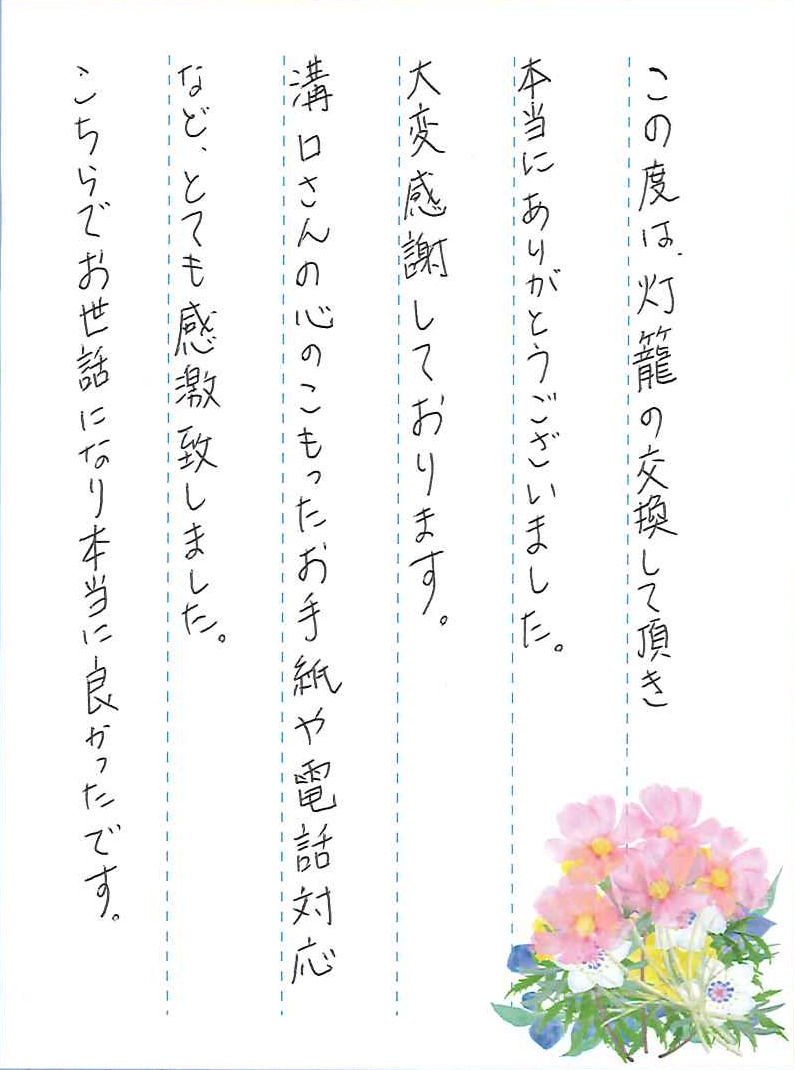 この度は、灯籠の交換して頂き
本当にありがとうございました。
大変感謝しております。
溝口さんの心のこもったお手紙や電話対応
など、とても感激致しました。
こちらでお世話になり本当に良かったです。